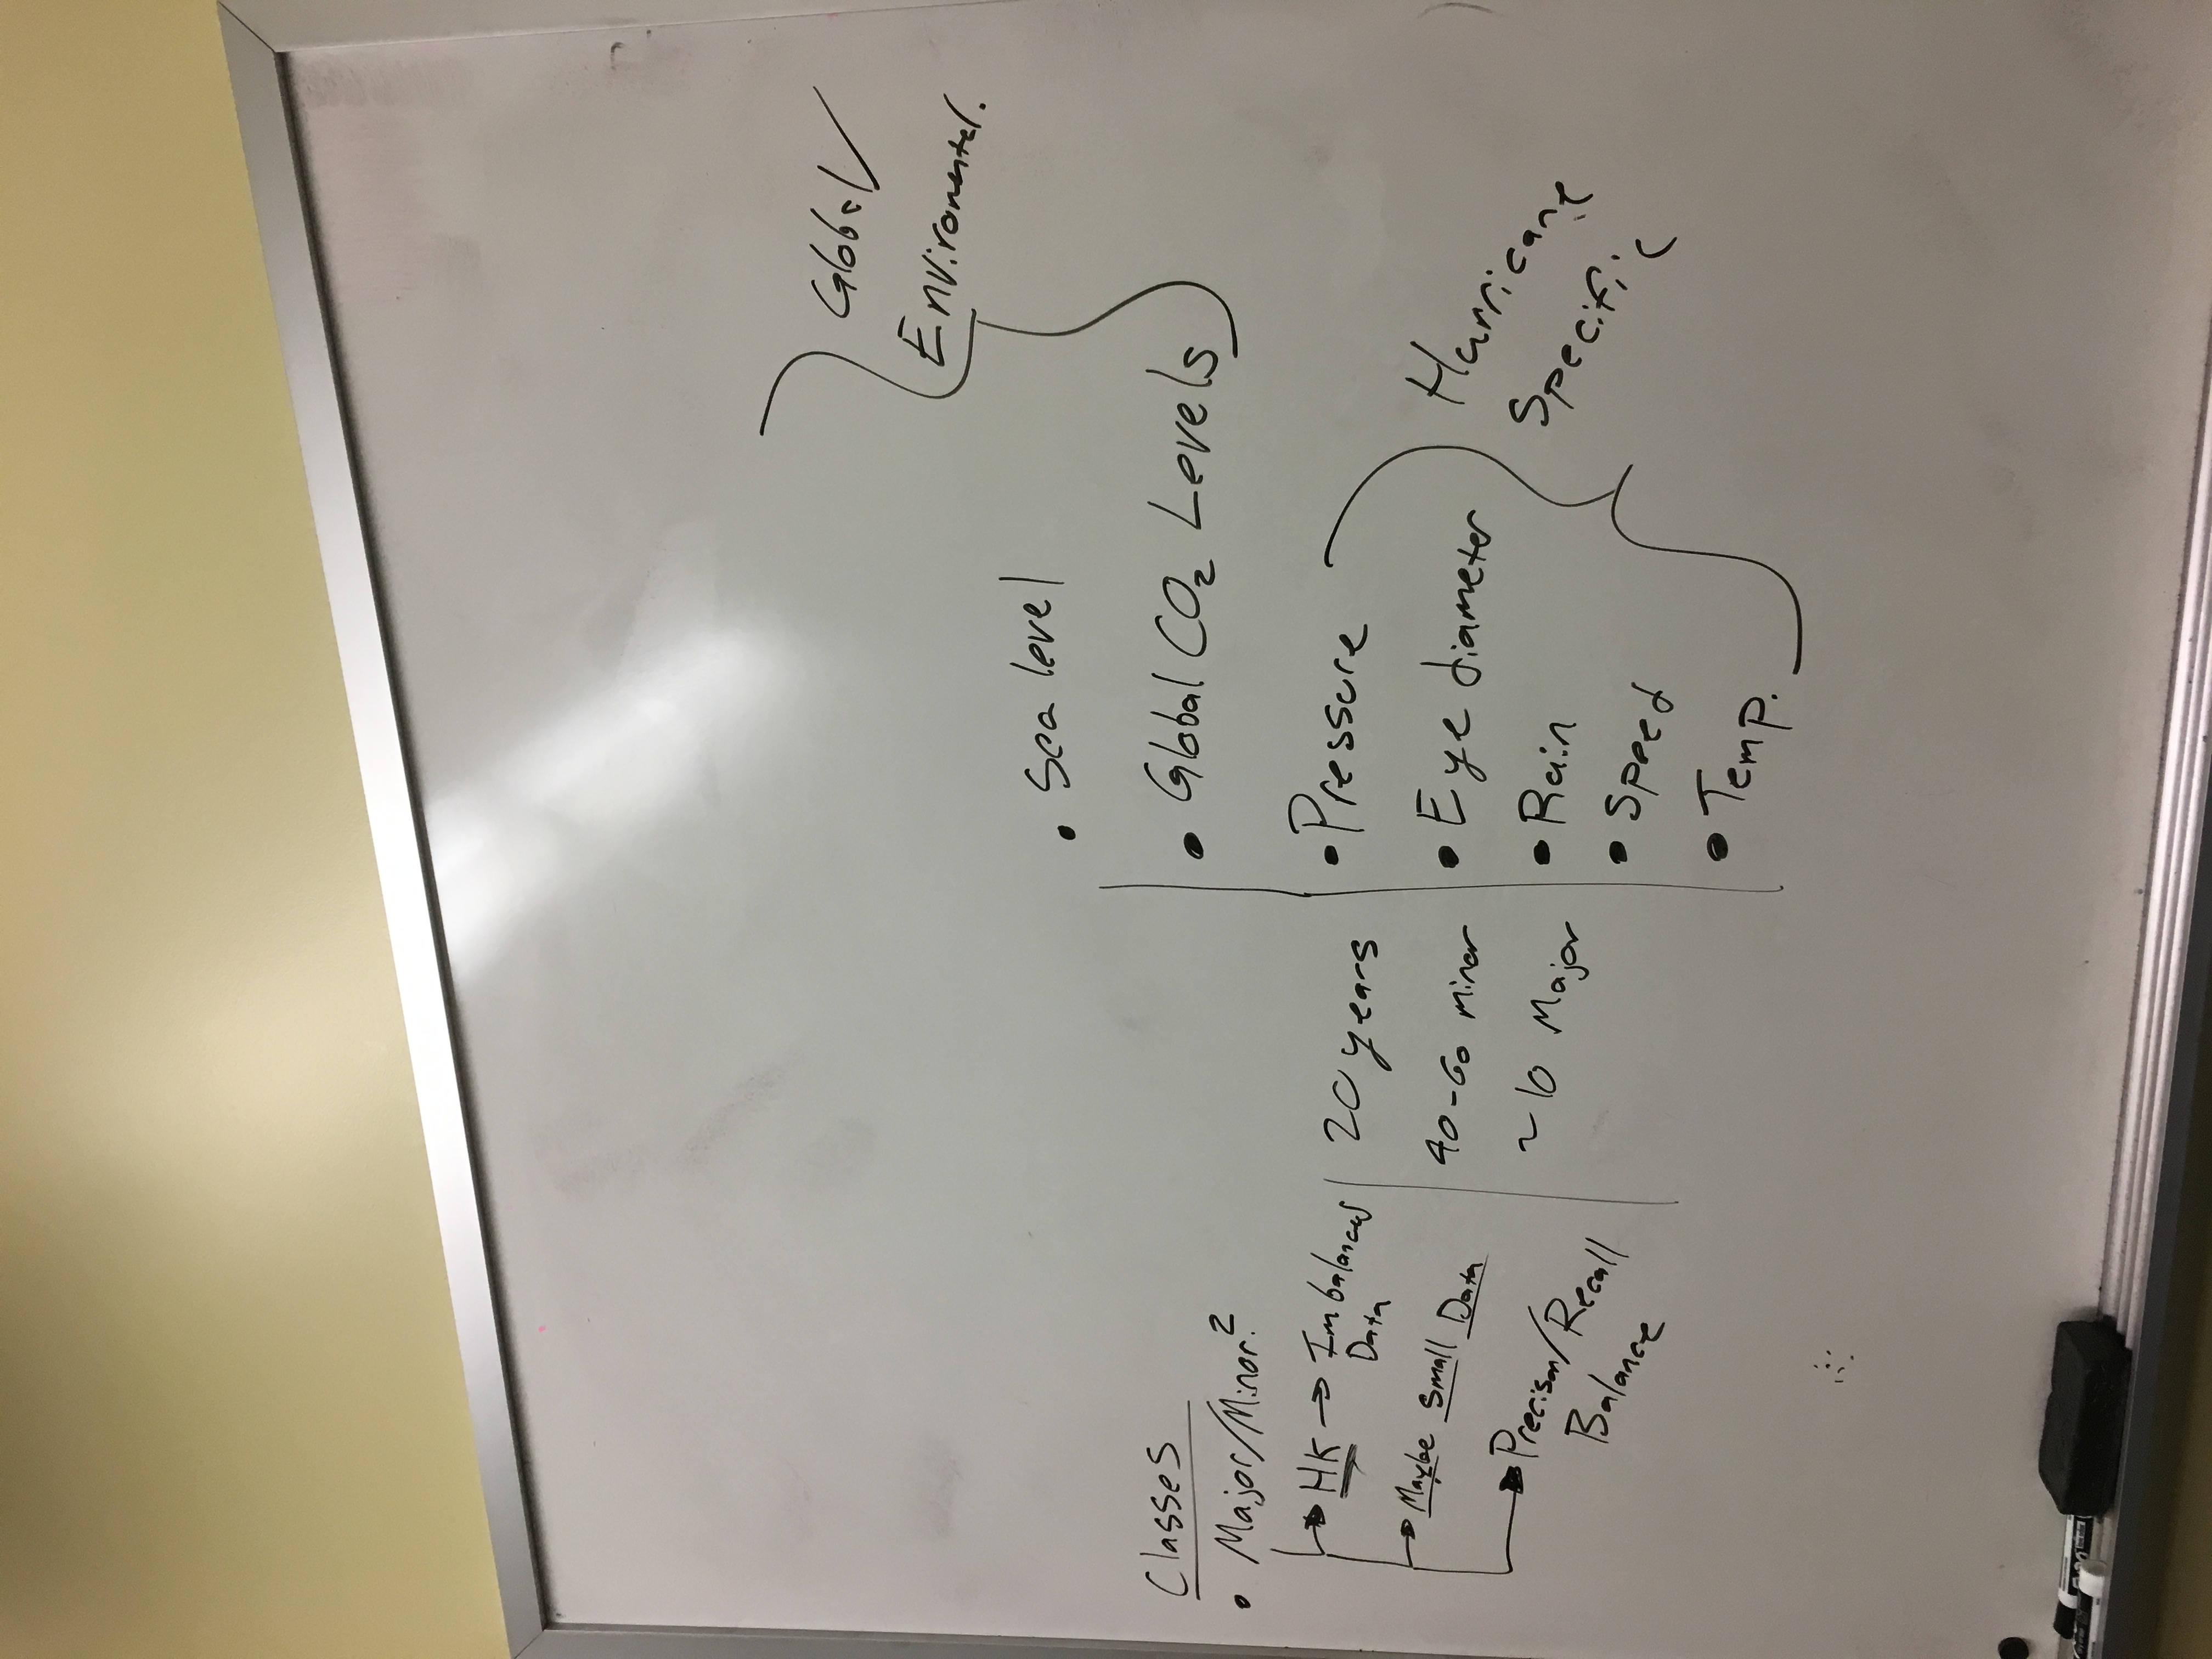 Classes
• Major/Minor?
HK → Imbalanced
Data
Maybe Small Data
Precison/Recall
Balance
20 years
40-60 minor
~10 Major
• Sea level
• Global CO₂ Levels
Global/
Enviromental.
• Pressure
• Eye diameter
• Rain
• Speed
• Temp.
Hurricane
Specific